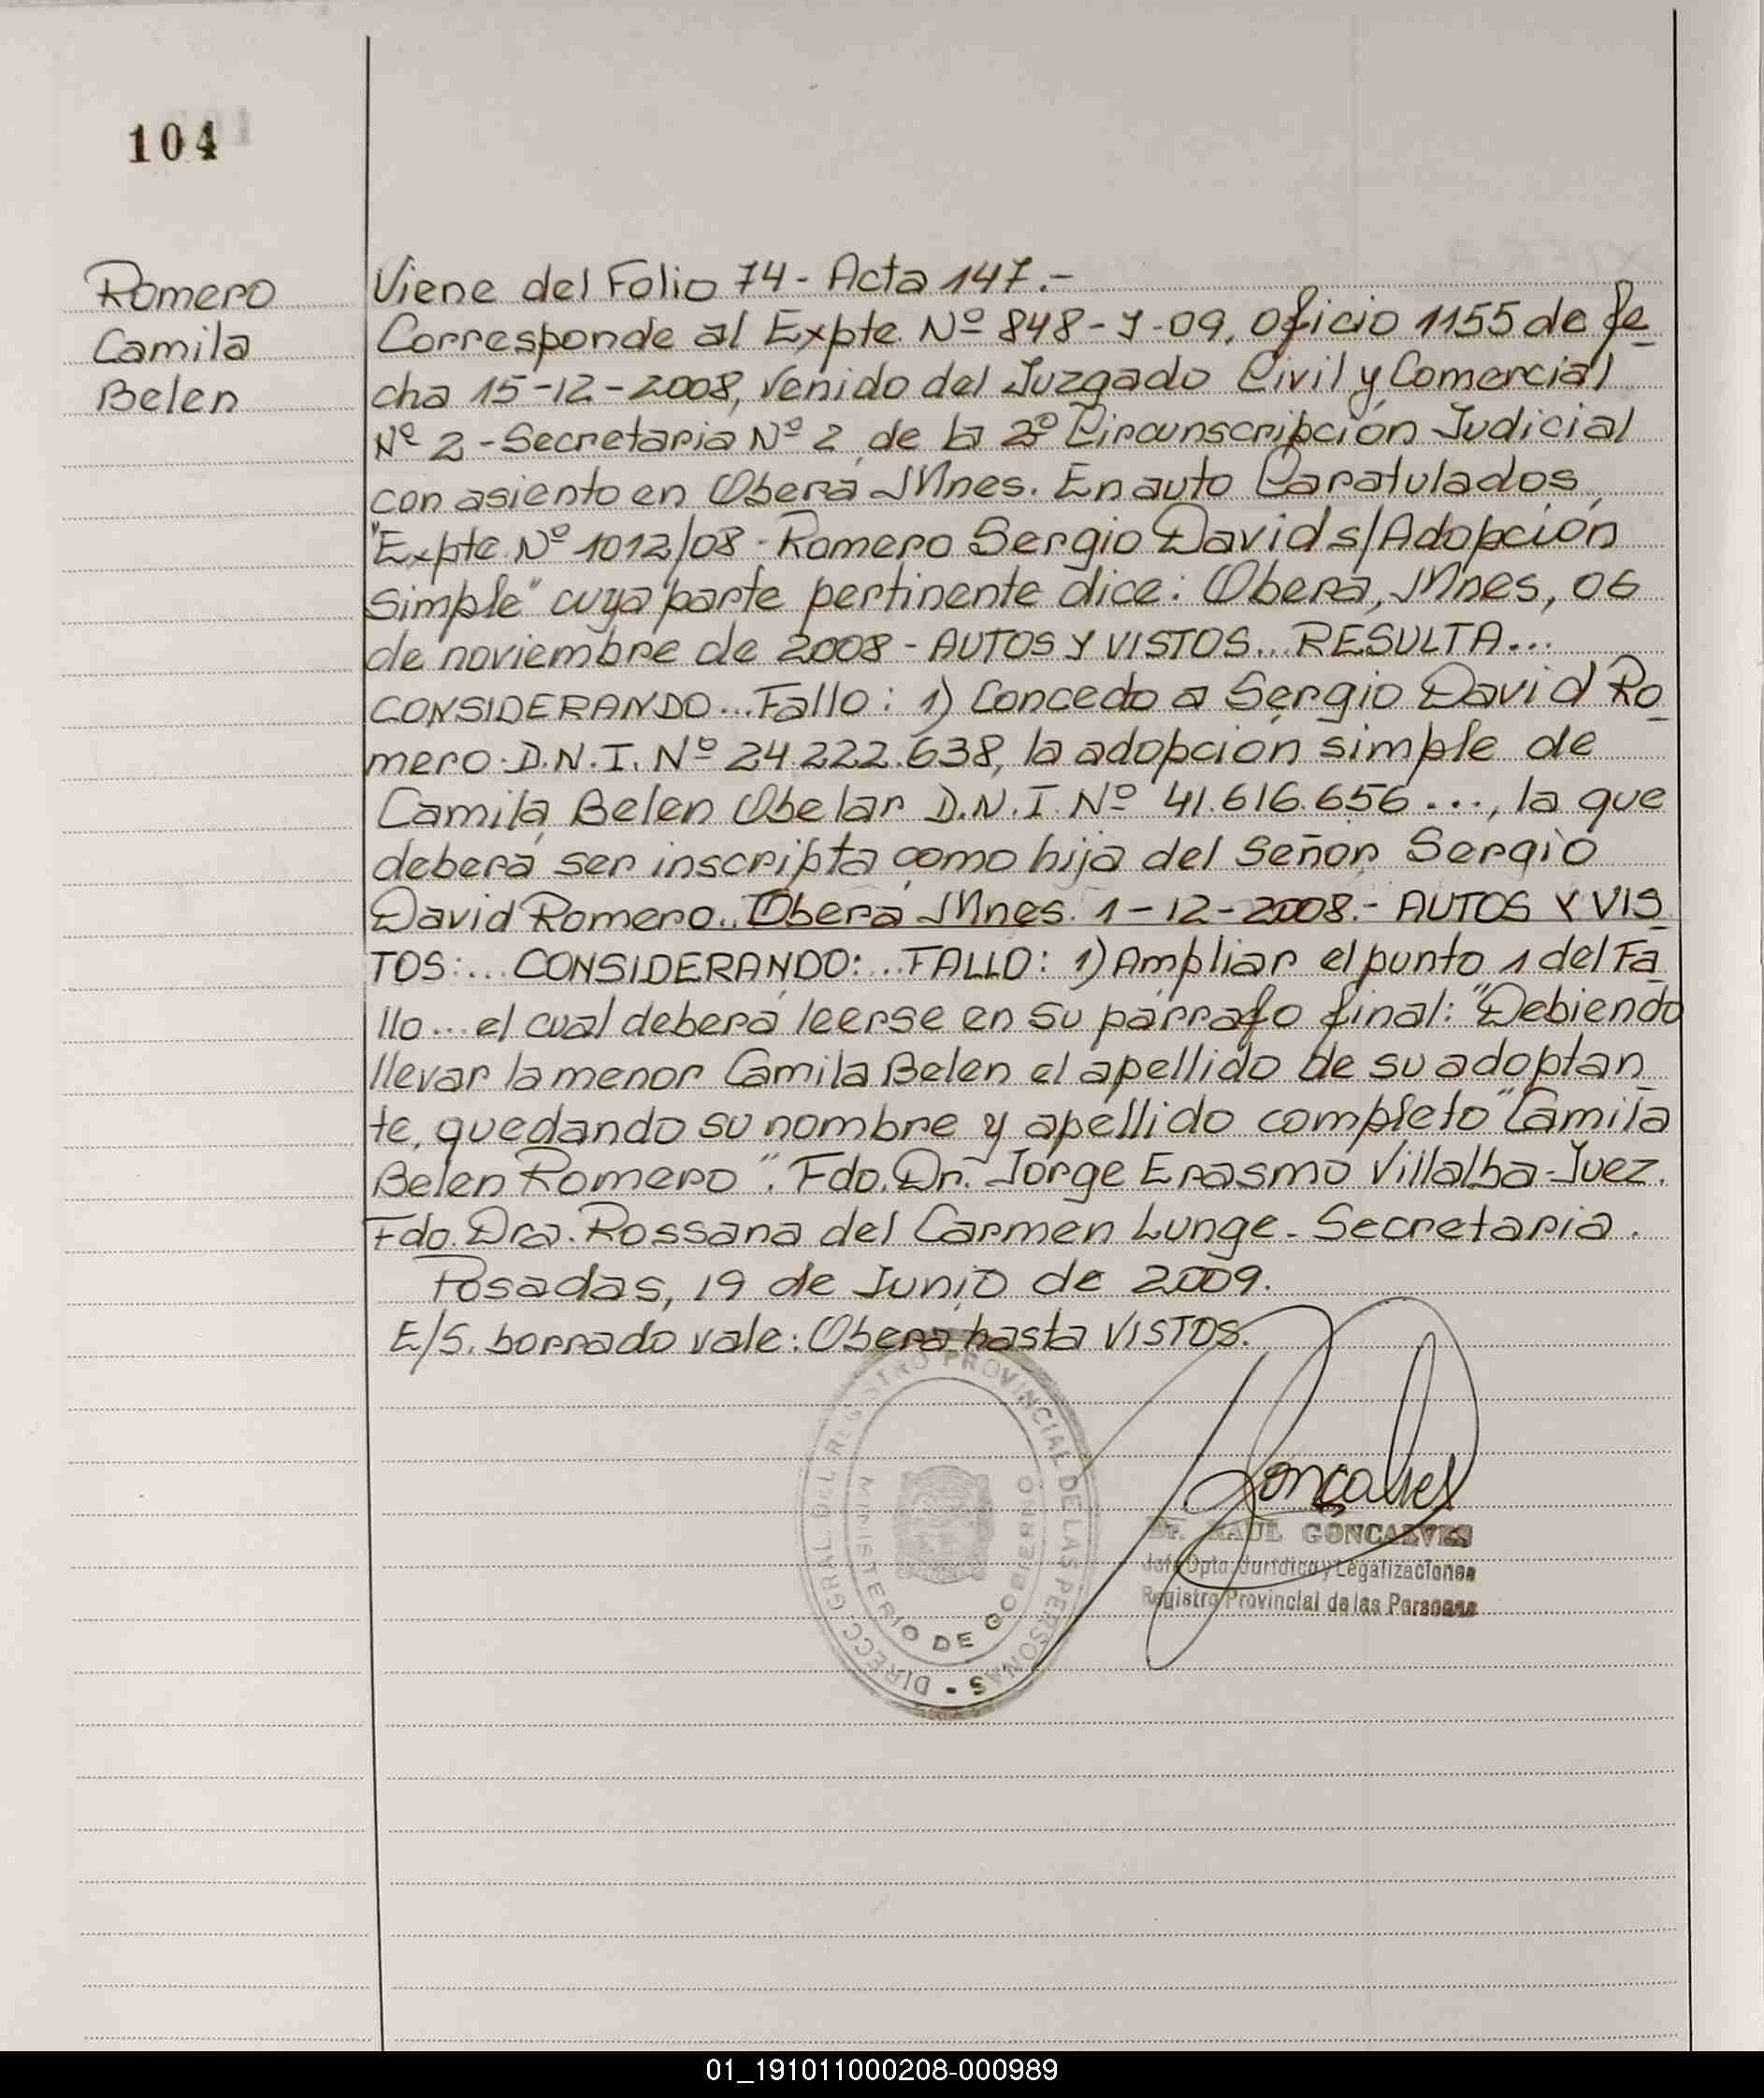 104
Romero
Camila
Belen
Viene del Folio 74 - Acta 147.-
Corresponde al Expte. Nº 848-J-09, Oficio 1155 de fe
cha 15-12-2008, Venido del Juzgado Civil y Comercial
Nº 2 - Secretaria Nº 2, de la 2º Circunscripción Judicial
con asiento en Oberá Mnes. En auto Caratulados,
"Expte Nº 1012/08 - Romero Sergio David s/Adopción
simple" cuya parte pertinente dice: Oberá, Mnes, 06
de noviembre de 2008 - AUTOS Y VISTOS... RESULTA...
CONSIDERANDO... Fallo: 1) Concedo a Sergio David Ro
mero. D.N.I. Nº 24.222.638, la adopción simple de
Camila Belen Obelar D.N.I. Nº 41.616.656 ..., la que
deberá ser inscripta como hija del Señor Sergio
David Romero.. Oberá Mnes. 1-12-2008.- AUTOS Y VIS
TOS:... CONSIDERANDO:... FALLO: 1) Ampliar el punto 1 del Fa
llo... el cual deberá leerse en su párrafo final: "Debiendo
llevar la menor Camila Belen el apellido de su adoptan
te, quedando su nombre y apellido completo "Camila
Belen Romero". Fdo. Dr. Jorge Erasmo Villalba - Juez.
Fdo. Dra. Rossana del Carmen Lunge - Secretaria.
Posadas, 19 de Junio de 2009.
E/S. borrado vale: Oberá hasta VISTOS.
DIRECC. GRAL. DEL REGISTRO PROVINCIAL DE LAS PERSONAS -
MINISTERIO DE GOBIERNO
Goncalves
Dr. RAUL GONCALVES
Jefe Dpto. Jurídico y Legalizaciones
Registro Provincial de las Personas
01_191011000208-000989